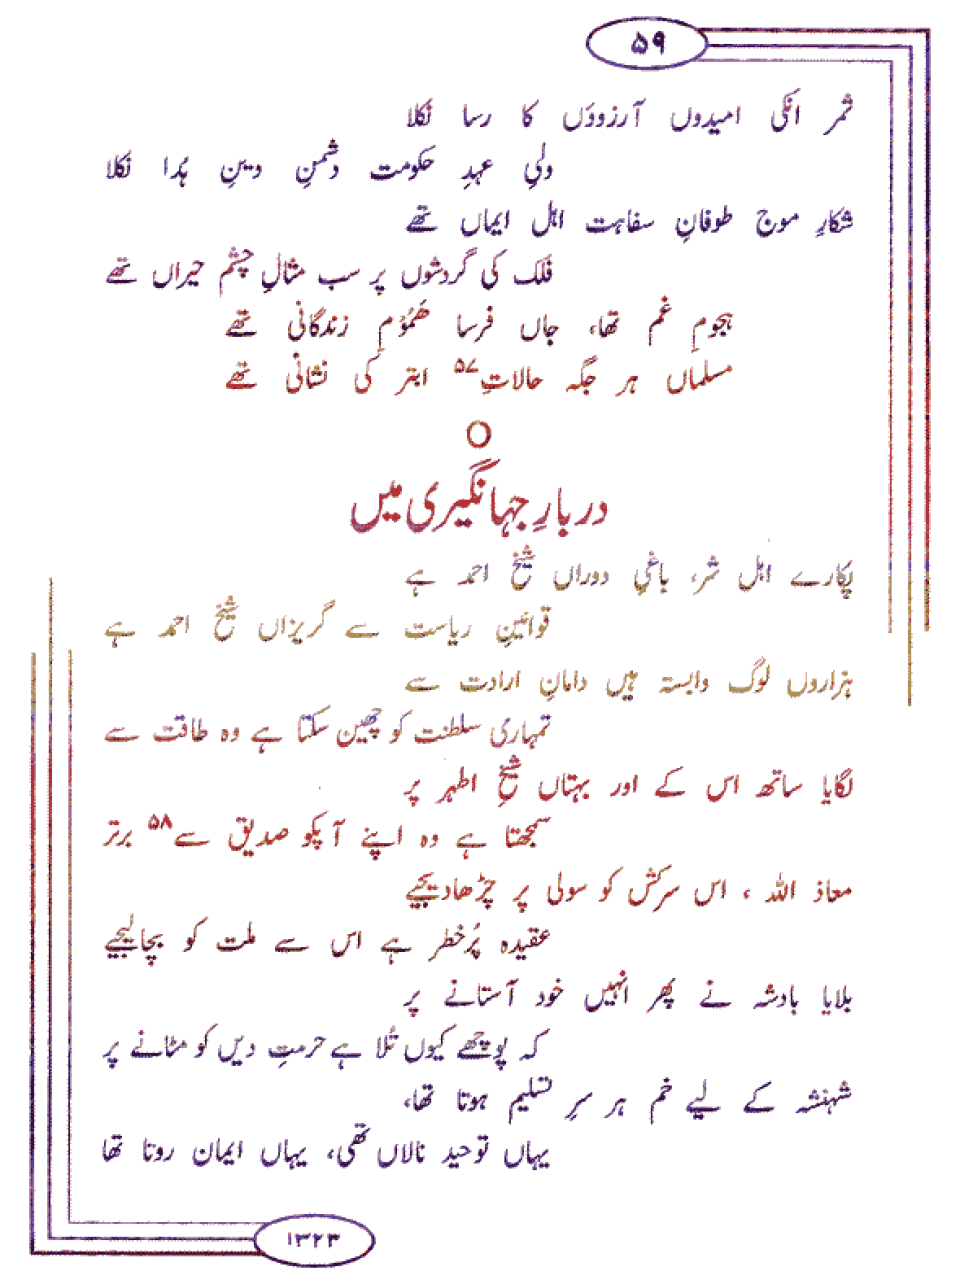 ۵۹
ثمر انکی امیدوں آرزوؤں کا رسا نکلا
ولیِ عہدِ حکومت دشمنِ دینِ ہُدا نکلا
شکارِ موج طوفانِ سفاہت اہل ایماں تھے
فلک کی گردشوں پر سب مثالِ چشم حیراں تھے
ہجومِ غم تھا، جاں فرسا ھَمُوْمِ زندگانی تھے
مسلماں ہر جگہ حالاتِ ۵۷ ابتر کی نشانی تھے
دربارِ جہانگیری میں
پکارے اہل شر، باغیِ دوراں شیخ احمد ہے
قوانینِ ریاست سے گریزاں شیخ احمد ہے
ہزاروں لوگ وابستہ ہیں دامانِ ارادت سے
تمہاری سلطنت کو چھین سکتا ہے وہ طاقت سے
لگایا ساتھ اس کے اور بہتاں شیخِ اطہر پر
سمجھتا ہے وہ اپنے آپکو صدیق سے ۵۸ برتر
معاذ اللہ ، اس سرکش کو سولی پر چڑھادیجیے
عقیدہ پُرخطر ہے اس سے ملت کو بچالیجیے
بلایا بادشہ نے پھر انہیں خود آستانے پر
کہ پوچھے کیوں تُلا ہے حرمتِ دیں کو مٹانے پر
شہنشہ کے لیے خم ہر سرِ تسلیم ہوتا تھا،
یہاں توحید نالاں تھی، یہاں ایمان روتا تھا
۱۳۲۳